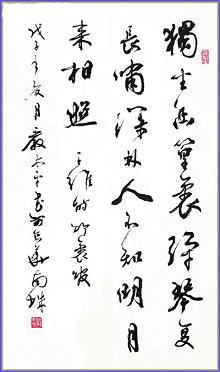 獨坐幽篁裏彈琴复
長嘯深林人不知明月
來相照 王維詩竹裏館
戊子年夏月